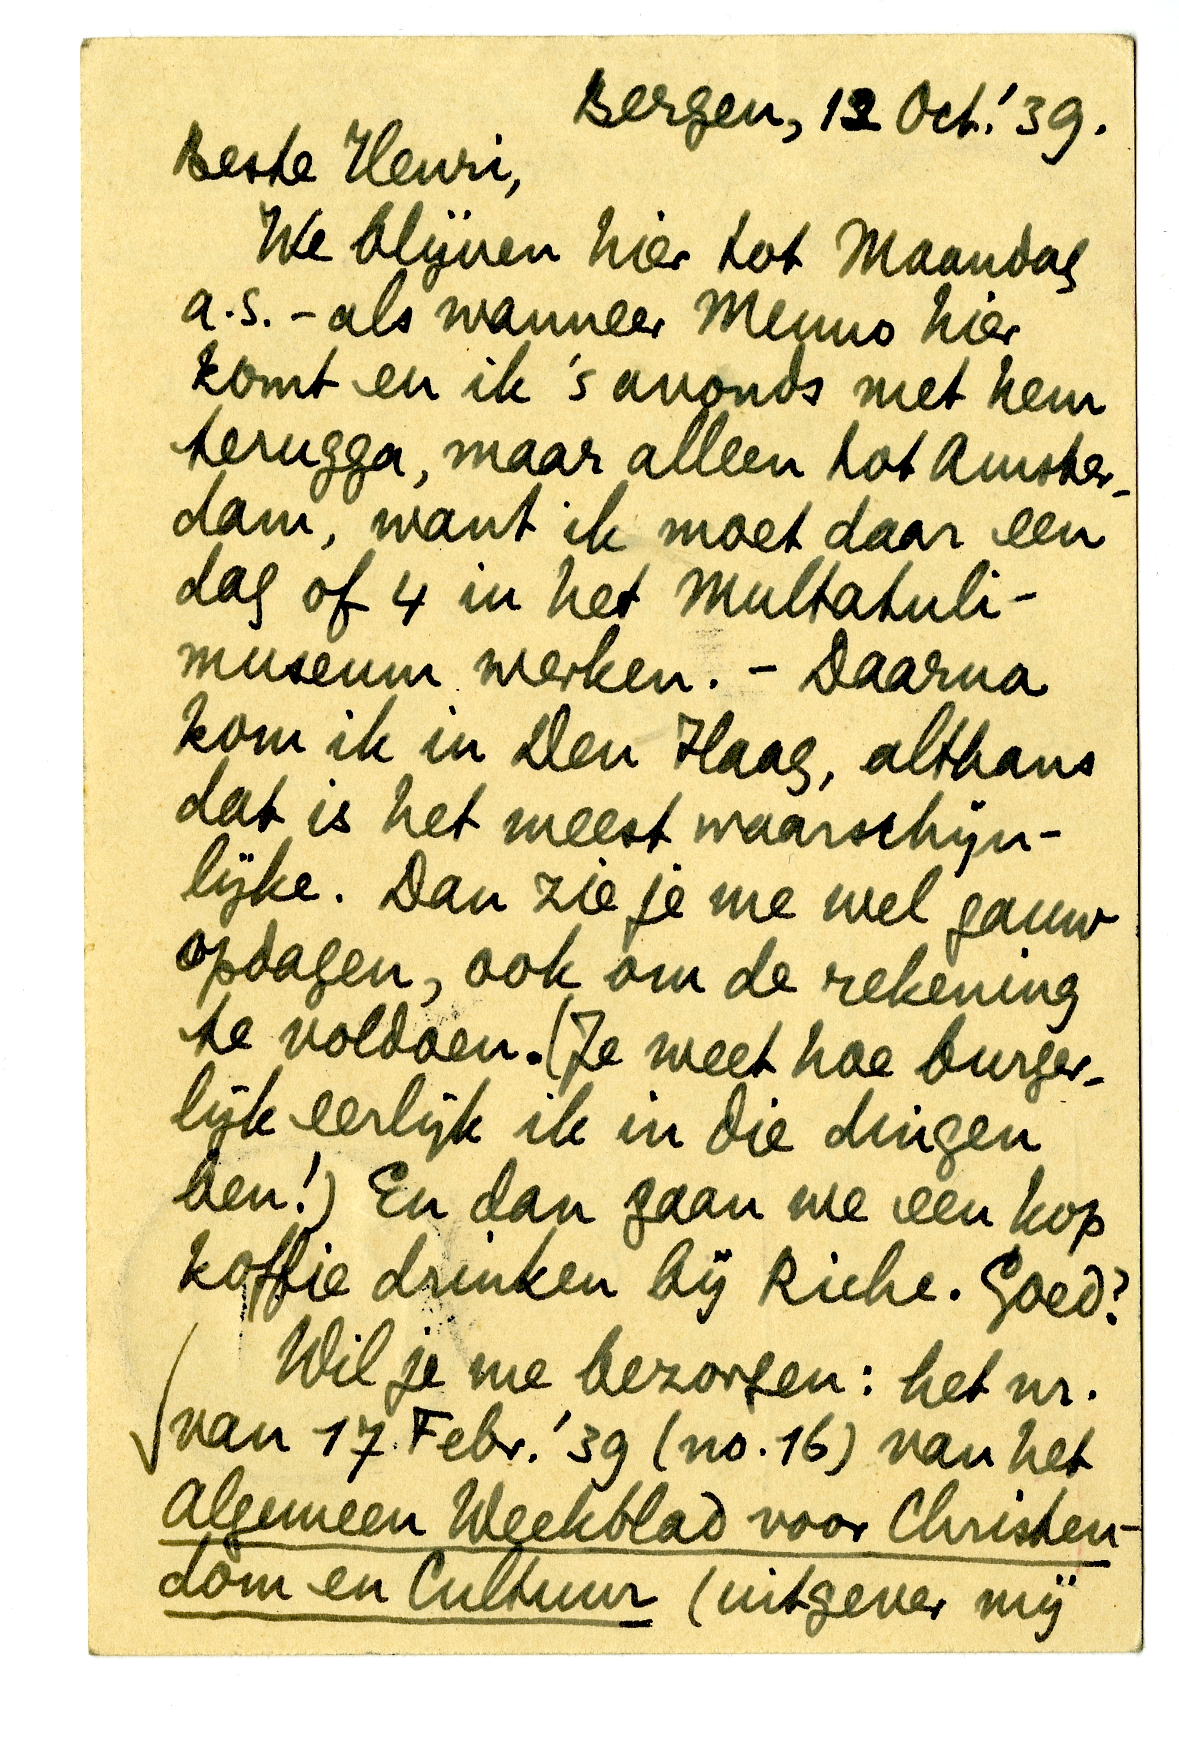 Bergen, 12 Oct.'39.
Beste Henri,
We blijven hier tot Maandag
a.s. - als wanneer Menno hier
komt en ik 's avonds met hem
terugga, maar alleen tot Amster-
dam, want ik moet daar een
dag of 4 in het Multatuli-
museum werken. - Daarna
kom ik in Den Haag, althans
dat is het meest waarschijn-
lijke. Dan zie je me wel gauw
opdagen, ook om de rekening
te voldoen. (Je weet hoe burger-
lijk eerlijk ik in die dingen
ben!) En dan gaan we een kop
koffie drinken bij Riche. Goed?
Wil je me bezorgen: het nr.
van 17 Febr.'39 (no.16) van het
Algemeen Weekblad voor Christen-
dom en Cultuur (uitgever mij